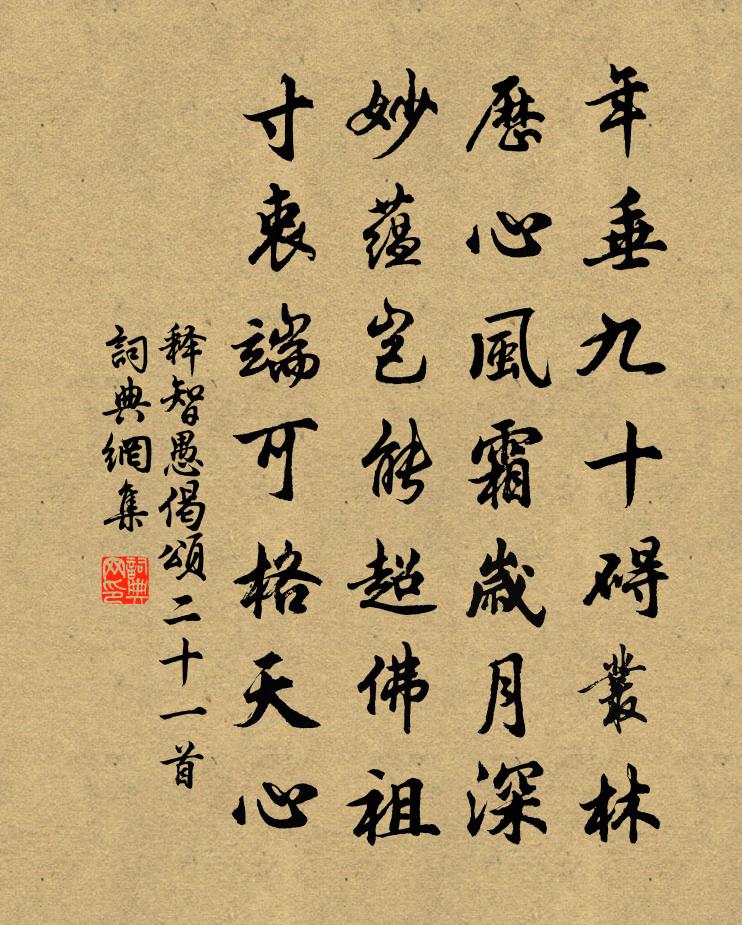 年垂九十碍叢林
歷心風霜歲月深
妙蘊豈能超佛祖
寸衷端可格天心
释智愚偈頌二十一首
詞典網集
詞典網印